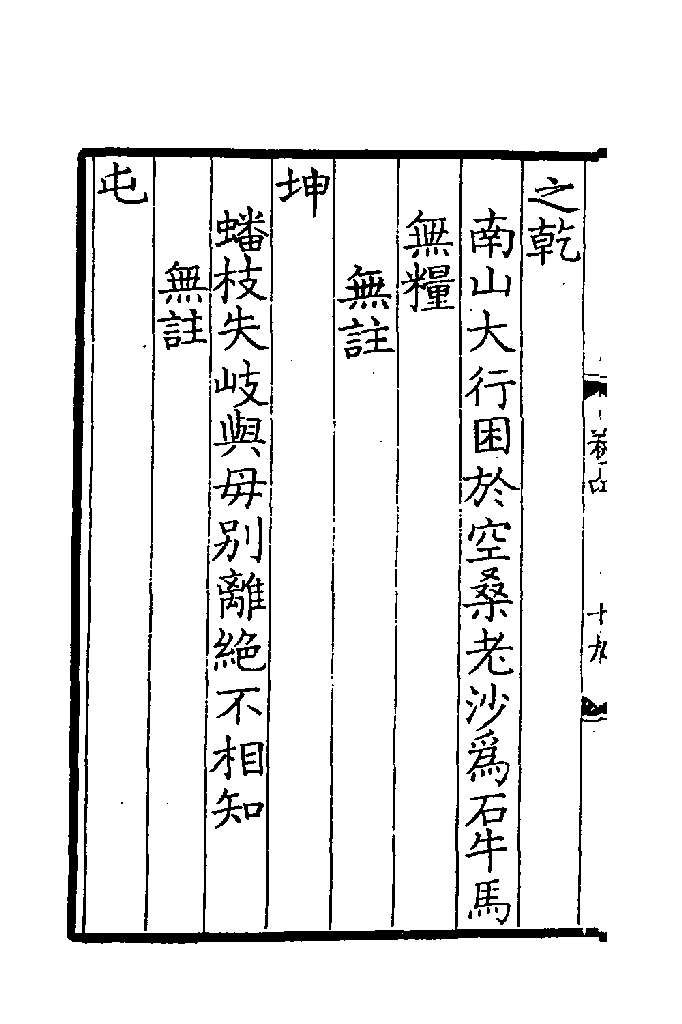 之乾
南山大行困於空桑老沙爲石牛馬
無糧
無註
坤
蟠枝失岐與毋别離絶不相知
無註
屯